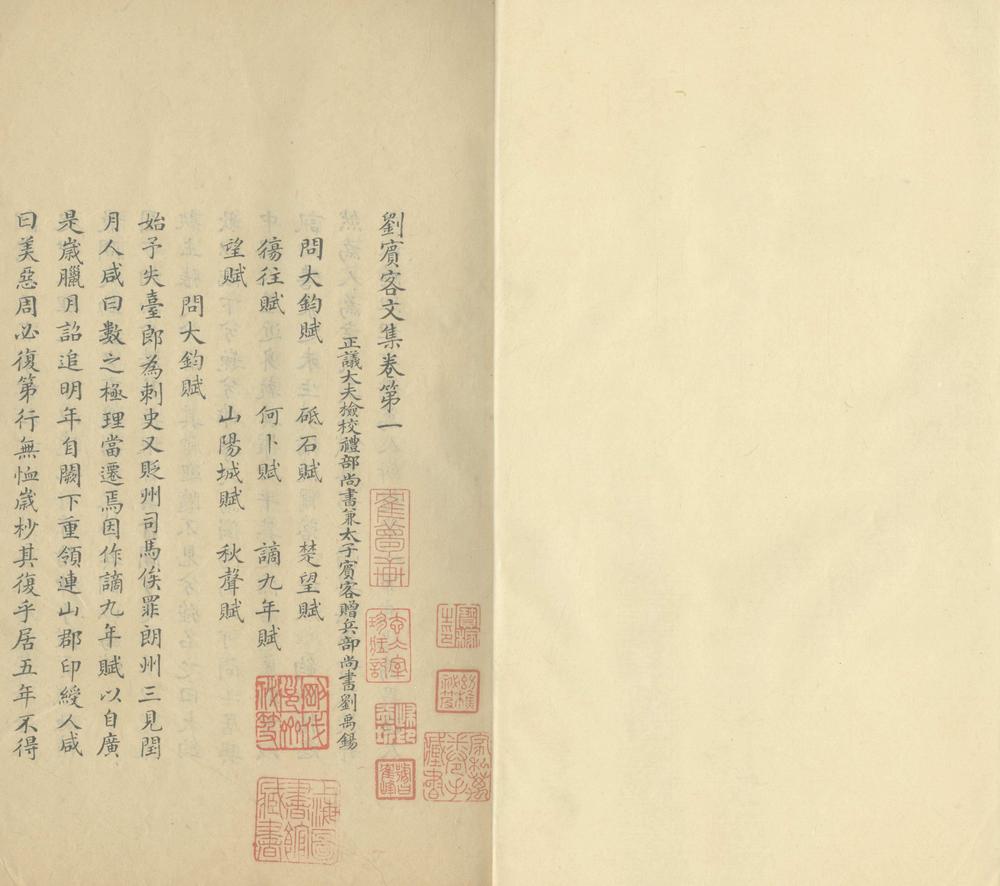 劉賓客文集卷第一
正議大夫檢校禮部尚書兼太子賓客贈兵部尚書劉禹錫
問大鈞賦 砥石賦 楚望賦
傷往賦 何卜賦 謫九年賦
望賦 山陽城賦 秋聲賦
問大鈞賦
始予失臺郎為刺史又貶州司馬俟罪朗州三見閏
月人咸曰數之極理當遷焉因作謫九年賦以自廣
是歲臘月詔追明年自闕下重領連山郡印綬人咸
曰美惡周必復第行無恤歲杪其復乎居五年不得
上海圖書館藏書